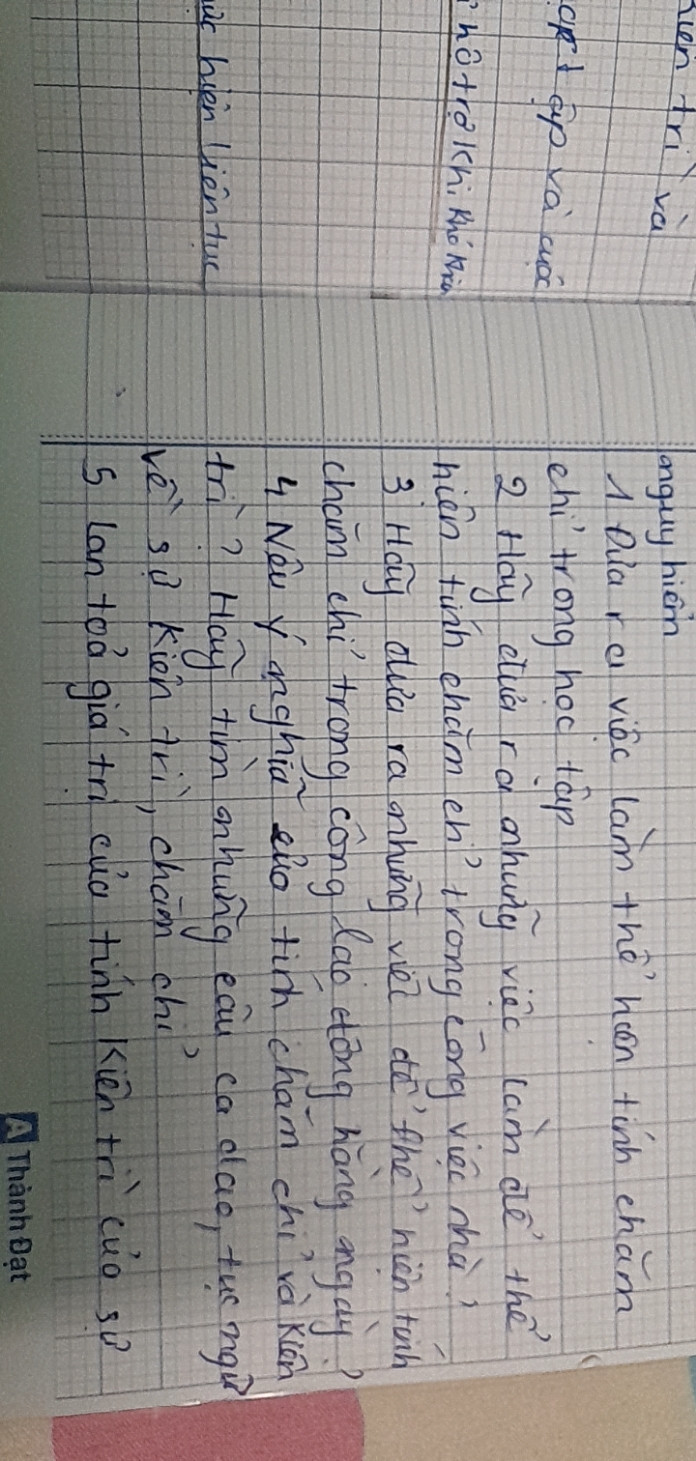 kiên trì và
tập và cuộc
hỗ trợ khi khó khăn
hiện liên tục
nguy hiểm
1 Đưa ra việc làm thể hiện tính chăm
chỉ trong học tập
2 Hãy đưa ra những việc làm để thể
hiên tính chăm chỉ trong công việc nhà?
3 Hãy đưa ra những việc để thể hiện tính
chăm chỉ trong công lao động hằng ngày?
4 Nêu ý nghĩa của tính chăm chỉ và kiên
trì? Hãy tìm những câu ca dao, tục ngữ
về sự kiên trì, chăm chỉ
5 lan toả giá trị của tính kiên trì của sự
A Thành Đạt